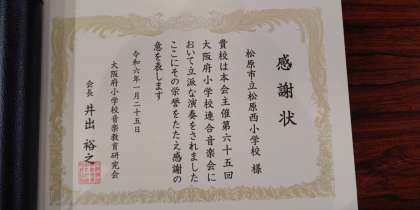 感謝状
松原市立松原西小学校 様
貴校は本会主催第六十五回
大阪府小学校連合音楽会に
おいて立派な演奏をされました
ここにその栄誉をたたえ感謝の
意を表します
令和六年一月二十五日
大阪府小学校音楽教育研究会
会長 井出 裕之